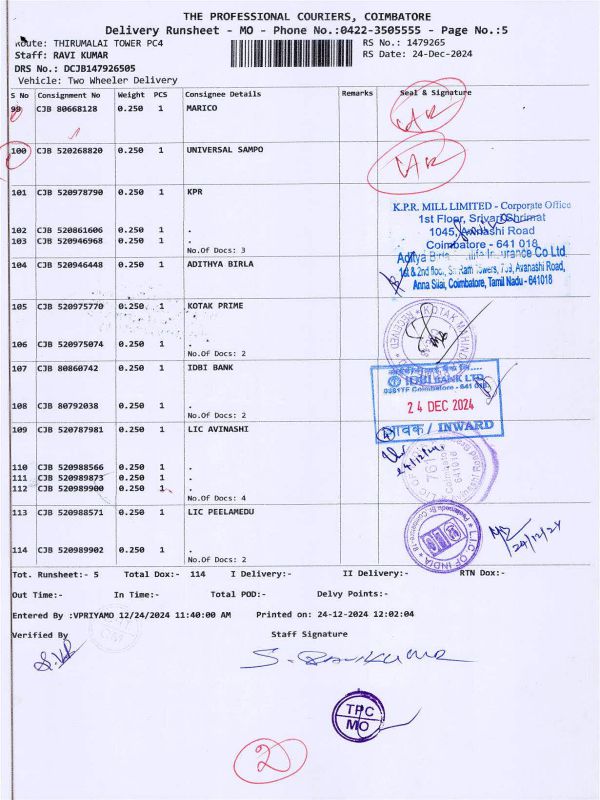 THE PROFESSIONAL COURIERS, COIMBATORE
Delivery Runsheet - MO - Phone No.:0422-3505555 - Page No.:5
Route: THIRUMALAI TOWER PC4 RS No.: 1479265
Staff: RAVI KUMAR RS Date: 24-Dec-2024
DRS No.: DCJB147926505
Vehicle: Two Wheeler Delivery
S No Consignment No Weight PCS Consignee Details Remarks Seal & Signature
99 CJB 80668128 0.250 1 MARICO
100 CJB 520268820 0.250 1 UNIVERSAL SAMPO
101 CJB 520978790 0.250 1 KPR
K.P.R. MILL LIMITED - Corporate Office
1st Floor, Srivari Shrimat
1045, Avinashi Road
Coimbatore - 641 018
102 CJB 520861606 0.250 1 .
103 CJB 520946968 0.250 1 .
No.Of Docs: 3
104 CJB 520946448 0.250 1 ADITHYA BIRLA
Aditya Birla Insurance Co Ltd
1st & 2nd floor, Sri Ram Towers, Avanashi Road,
Anna Silai, Coimbatore, Tamil Nadu - 641018
105 CJB 520975770 0.250 1 KOTAK PRIME
KOTAK MAHIND
RECEIVED
106 CJB 520975074 0.250 1 .
No.Of Docs: 2
107 CJB 80860742 0.250 1 IDBI BANK
IDBI BANK LTD
Coimbatore - 641 018
24 DEC 2024
आवक / INWARD
108 CJB 80792038 0.250 1 .
No.Of Docs: 2
109 CJB 520787981 0.250 1 LIC AVINASHI
24/12/24
110 CJB 520988566 0.250 1 .
111 CJB 520989873 0.250 1 .
112 CJB 520989900 0.250 1 .
No.Of Docs: 4
113 CJB 520988571 0.250 1 LIC PEELAMEDU
L.I.C. OF INDIA
24/12/24
114 CJB 520989902 0.250 1 .
No.Of Docs: 2
Tot. Runsheet:- 5 Total Dox:- 114 I Delivery:- II Delivery:- RTN Dox:-
Out Time:- In Time:- Total POD:- Delvy Points:-
Entered By :VPRIYAMO 12/24/2024 11:40:00 AM Printed on: 24-12-2024 12:02:04
Verified By Staff Signature
S. Ravikumar
TPC
MO
2